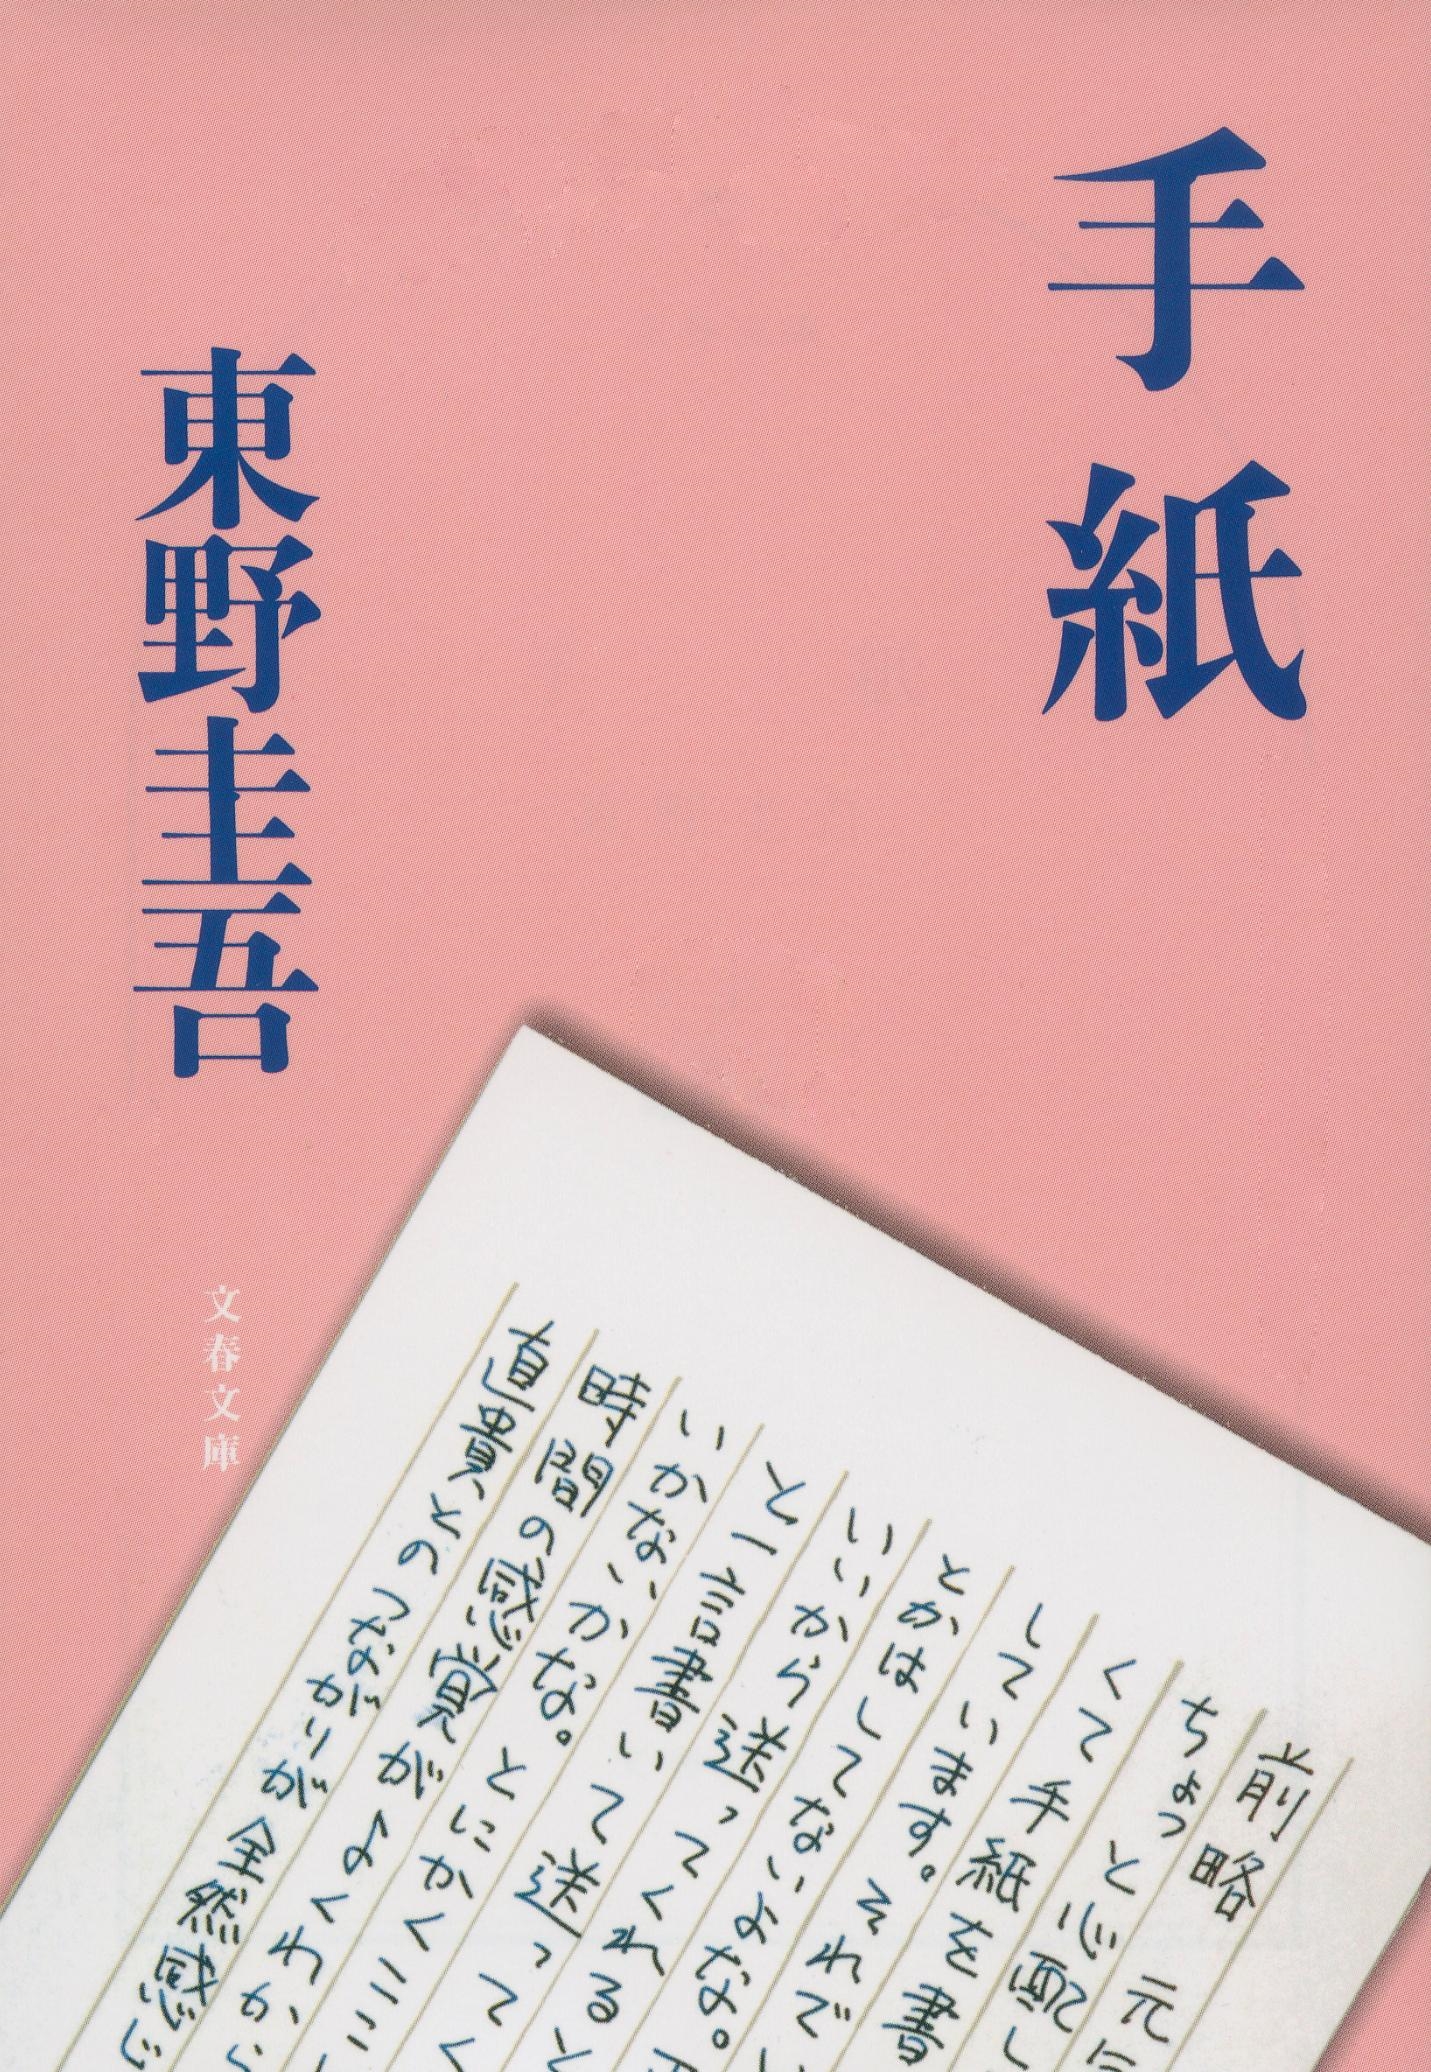 手紙
東野圭吾
文春文庫
前略 元
ちょっと心配し
くて手紙を書
しています。それで
とかはしてないよな。
いいから送ってくれると
と一言書いて送ってく
いかないかな。とにかくここ
時間の感覚がよくわから
直貴とのつながりが全然感じ